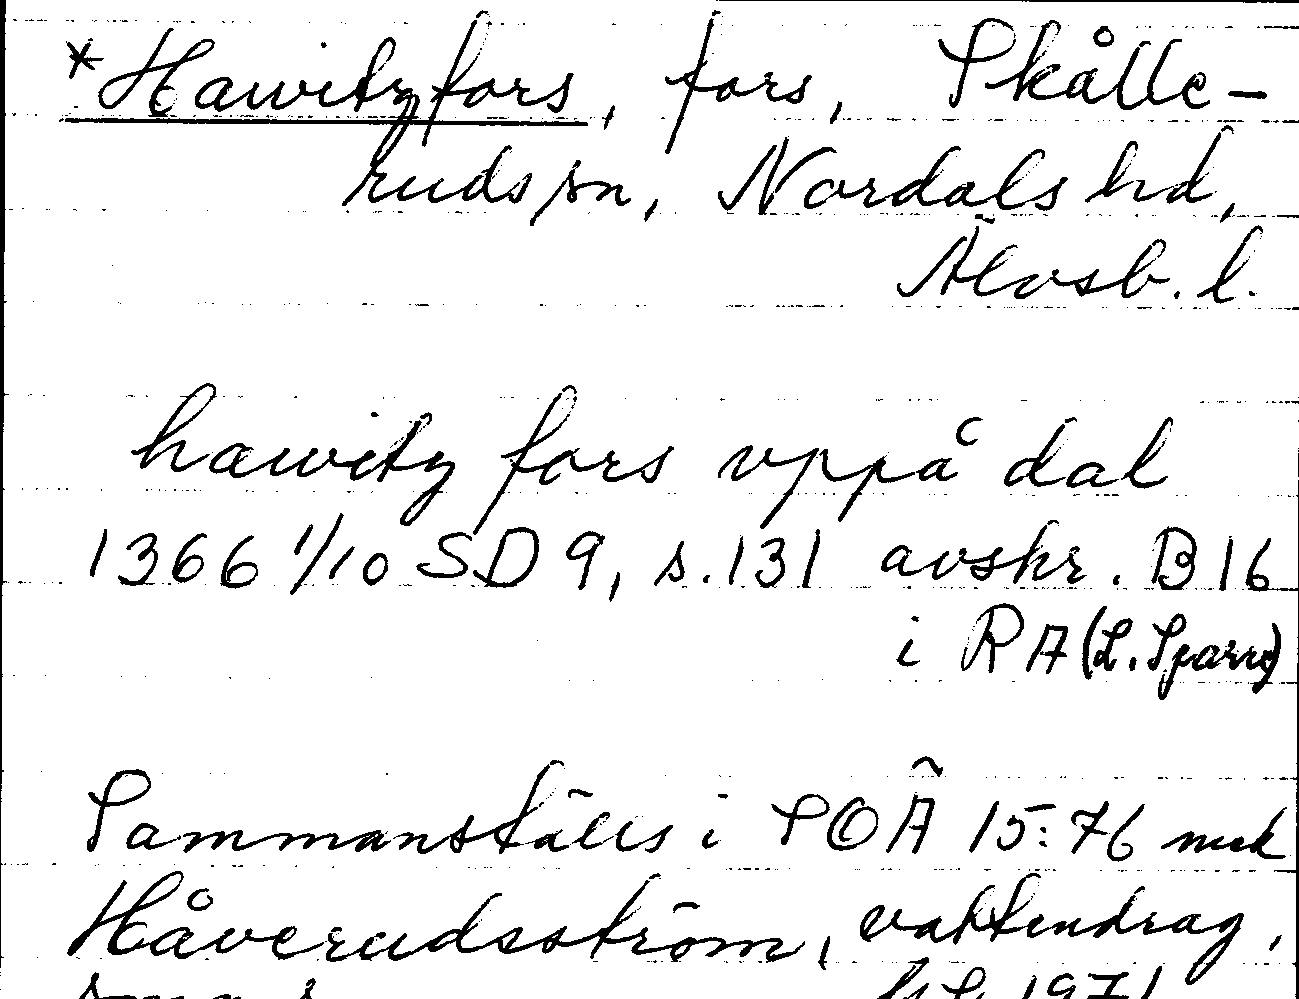 *Hawitzfors, fors, Skålle-
ruds sn, Nordals hd,
Älvsb. l.
hawitz fors vppå dal
1366 1/10 SD 9, s. 131 avskr. B 16
i RA (L. Sparre)
Sammanställs i SOÄ 15:76 med
Håverudsström, vattendrag,
1971